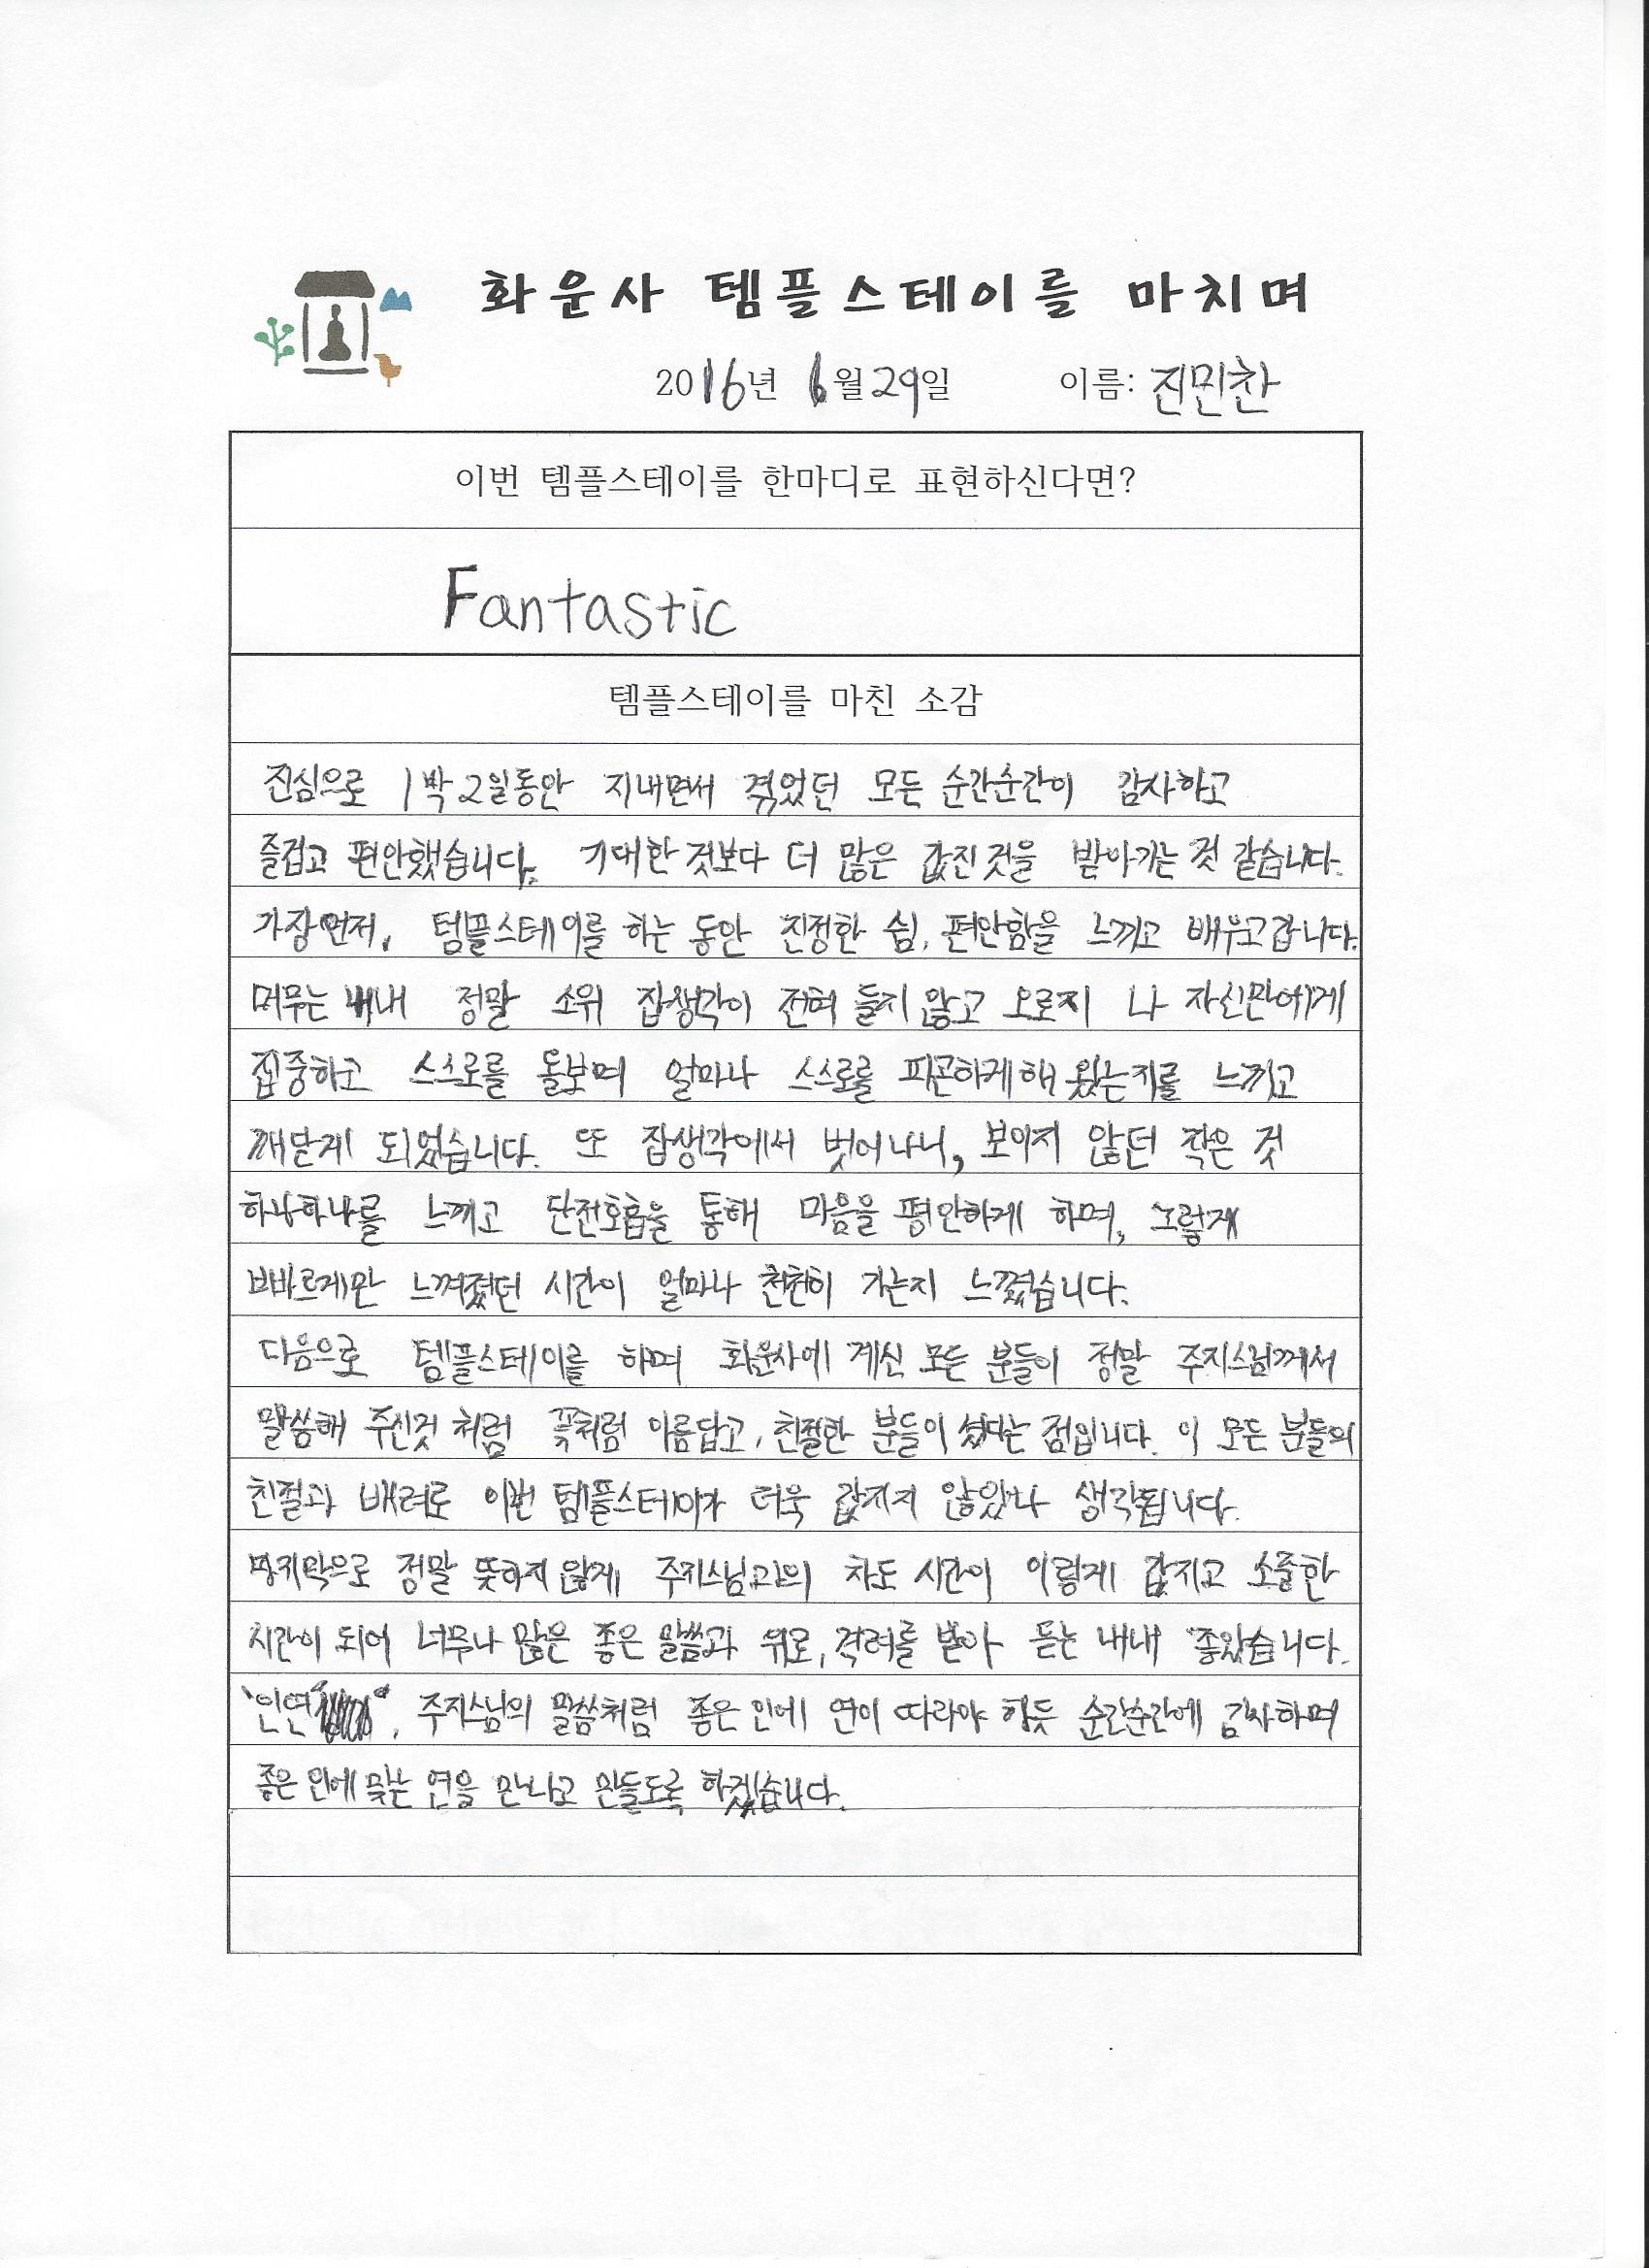 화운사 템플스테이를 마치며
2016년 6월 29일 이름: 진민찬
이번 템플스테이를 한마디로 표현하신다면?
Fantastic
템플스테이를 마친 소감
진심으로 1박2일동안 지내면서 겪었던 모든 순간순간이 감사하고
즐겁고 편안했습니다. 기대한 것보다 더 많은 값진 것을 받아가는 것 같습니다.
가장 먼저, 템플스테이를 하는 동안 진정한 쉼, 편안함을 느끼고 배우고 갑니다.
머무는 내내 정말 소위 잡생각이 전혀 들지 않고 오로지 나 자신만에게
집중하고 스스로를 돌보며 얼마나 스스로를 피곤하게 해 왔는지를 느끼고
깨닫게 되었습니다. 또 잡생각에서 벗어나니, 보이지 않던 작은 것
하나하나를 느끼고 단전호흡을 통해 마음을 평안하게 하며, 그렇게
빠르게만 느껴졌던 시간이 얼마나 천천히 가는지 느꼈습니다.
다음으로 템플스테이를 하며 화운사에 계신 모든 분들이 정말 주지스님께서
말씀해 주신것 처럼 꽃처럼 아름답고, 친절한 분들이 셨다는 점입니다. 이 모든 분들의
친절과 배려로 이번 템플스테이가 더욱 값지지 않았나 생각됩니다.
마지막으로 정말 뜻하지 않게 주지스님과의 차도 시간이 이렇게 값지고 소중한
시간이 되어 너무나 많은 좋은 말씀과 위로, 격려를 받아 듣는 내내 좋았습니다.
"인연", 주지스님의 말씀처럼 좋은 인에 연이 따라야 하듯 순간순간에 감사하며
좋은 인에 맞는 연을 만나고 만들도록 하겠습니다.